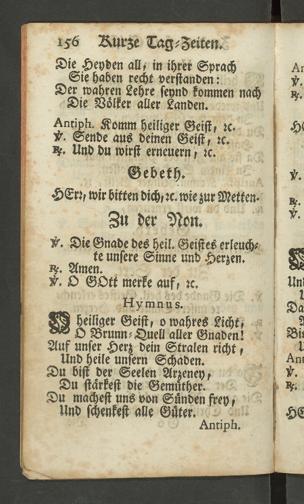 156 Kurze Tag-Zeiten.
Die Heyden all, in ihrer Sprach
Sie haben recht verstanden:
Der wahren Lehre seynd kommen nach
Die Völker aller Landen.
Antiph. Komm heiliger Geist, ꝛc.
℣. Sende aus deinen Geist, ꝛc.
℟. Und du wirst erneuern, ꝛc.
Gebeth.
HErꝛ, wir bitten dich, ꝛc. wie zur Metten.
Zu der Non.
℣. Die Gnade des heil. Geistes erleuch-
te unsere Sinne und Herzen.
℟. Amen.
℣. O GOtt merke auf, ꝛc.
Hymnus.
O heiliger Geist, o wahres Licht,
O Brunn-Quell aller Gnaden!
Auf unser Herz dein Stralen richt,
Und heile unsern Schaden.
Du bist der Seelen Arzeney,
Du stärkest die Gemüther.
Du machest uns von Sünden frey,
Und schenkest alle Güter.
Antiph.